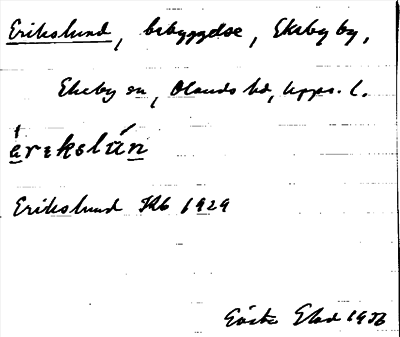 Erikslund, bebyggelse, Ekeby by,
Ekeby sn, Olands hd, Upps. l.
èrekslún
Erikslund Jkb 1929
Gösta Elod 1936